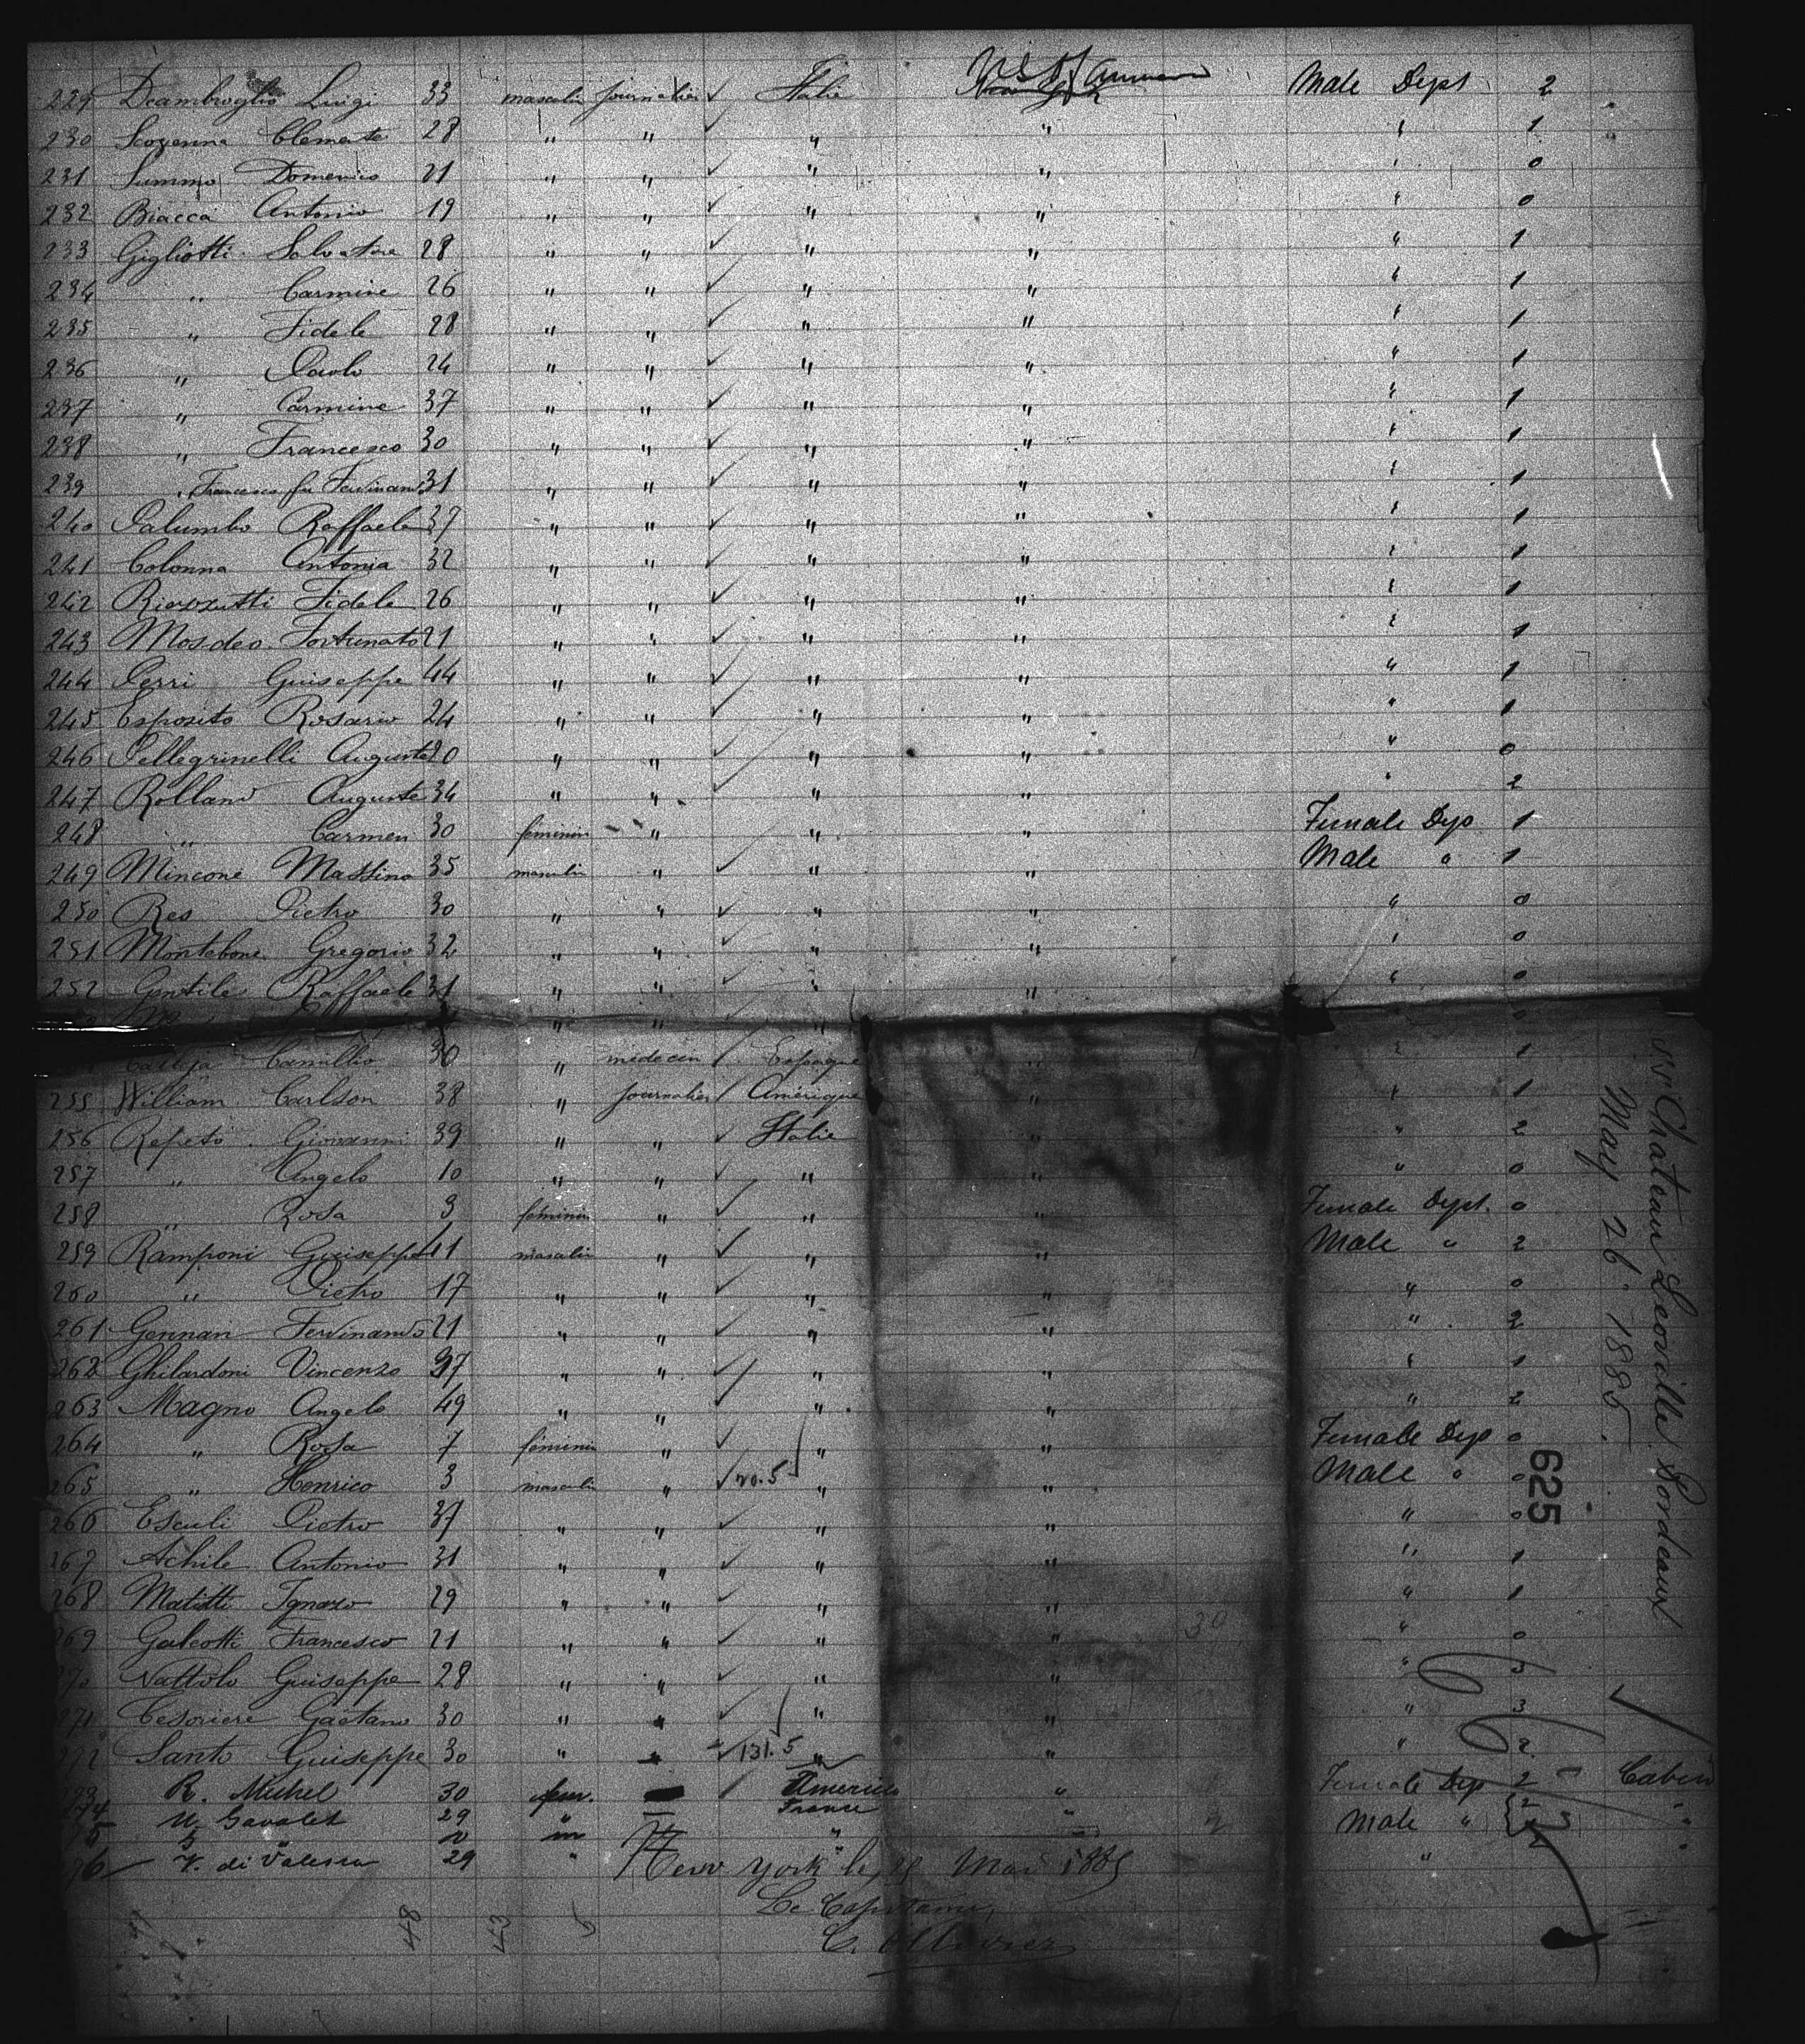 229 Deambroglio Luigi 33 masculin journalier ✓ Italie U S of America Male Dept 2
230 Clemente 28 " " ✓ " " " 1
231 Summo Domenico 21 " " ✓ " " " 0
232 Biacca Antonio 19 " " ✓ " " " 0
233 Gigliotti Salvatore 28 " " ✓ " " " 1
234 " Carmine 26 " " ✓ " " " 1
235 " Fidele 28 " " ✓ " " " 1
236 " Paolo 24 " " ✓ " " " 1
237 " Carmine 37 " " ✓ " " " 1
238 " Francesco 30 " " ✓ " " " 1
239 " Francesco fu Ferdinando 31 " " ✓ " " " 1
240 Palumbo Raffaele 37 " " ✓ " " " 1
241 Colonna Antonia 32 " " ✓ " " " 1
242 Fidele 26 " " ✓ " " " 1
243 Fortunato 21 " " ✓ " " " 1
244 Perri Guiseppe 44 " " ✓ " " " 1
245 Esposito Rosario 24 " " ✓ " " " 1
246 Pellegrinelli Auguste 20 " " ✓ " " " 0
247 Rolland Auguste 34 " " ✓ " " " 2
248 " Carmen 30 feminin " " " Female Dep 1
249 Mincone Massino 35 masculin " ✓ " " Male " 1
250 Res Pietro 30 " " ✓ " " " 0
251 Montebone Gregorio 32 " " ✓ " " " 0
252 Gentile Raffaele 31 " " ✓ " " " 0
" " ✓ " 0
Calleja Camillio 30 " médecin / Espagne " " 1
255 William Carlson 38 " journalier / Amérique " " 1
256 Repeto Giovanni 39 " " ✓ Italie " " 2
257 " Angelo 10 " " ✓ " " " 0
258 " Rosa 3 feminin " ✓ " " Female Dept. 0
259 Ramponi Guiseppe 41 masculin " ✓ " " Male " 2
260 " Pietro 17 " " ✓ " " " 0
261 Gennari Ferdinando 21 " " ✓ " " " 2
262 Ghilardoni Vincenzo 37 " " ✓ " " " 1
263 Magno Angelo 49 " " ✓ " " " 2
264 " Rosa 7 feminin " ✓ " " Female Dep 0
265 " Henrico 3 masculin " ✓ " " Male " 0
266 Esculi Pietro 37 " " ✓ " " " 0
267 Achile Antonio 31 " " ✓ " " " 1
268 Matiotti Ignazo 29 " " ✓ " " " 1
269 Galeotti Francesco 21 " " ✓ " " 30 " 0
270 Nattolo Guiseppe 28 " " ✓ " " " 3
271 Cesoriere Gaetano 30 " " ✓ " " " 3
272 Santo Guiseppe 30 " " ✓ 131.5 " " " 2
273 R. Michel 30 fem. / America " Female Dep 2 Cabin
274 29 " France " Male " "
275 " m "
276 V. di 29 " "
New York le, 25 Mai 1885
Le Capitaine,
C. Ollivier
ss Chateau Leoville Bordeaux
May 26 1885.
625